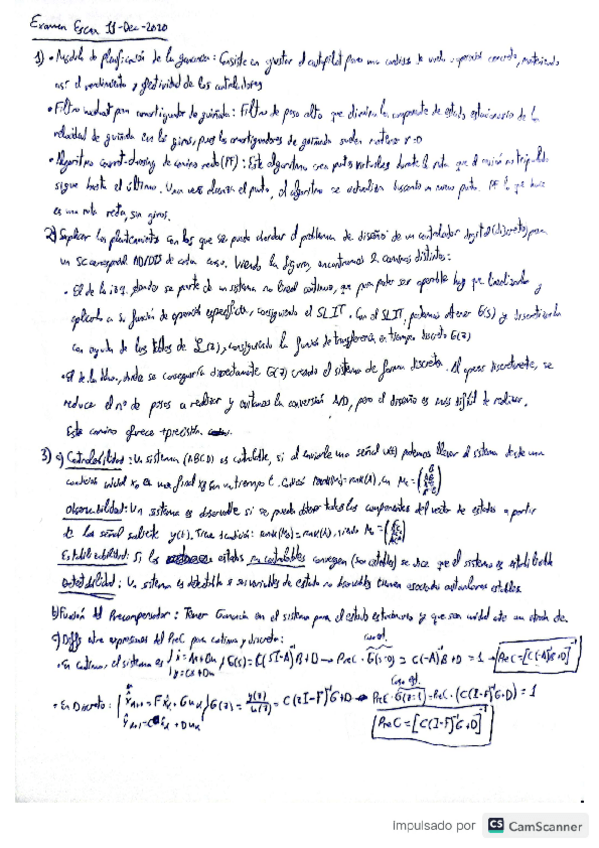 Examen Escar 11-Dec-2020
1) • Modelo de planificación de la ganancia: Consiste en ajustar el autopilot para una condición de vuelo y operación concreta, maximizando
así el rendimiento y efectividad de los controladores
• Filtro washout para amortiguador de guiñada: Filtro de paso alto que elimina la componente de estado estacionario de la
velocidad de guiñada en los giros, pues los amortiguadores de guiñada suelen mantener r=0
• Algoritmo carrot-chasing de camino recto (PF): Este algoritmo crea puntos virtuales durante la ruta que el avión no tripulado
sigue hasta el último. Una vez alcanza el punto, el algoritmo se actualiza buscando un nuevo punto. PF lo que hace
es una ruta recta, sin giros.
2) Explicar los planteamientos con los que se puede abordar el problema de diseño de un controlador digital (discreto) para
un SC correspond. AD/DIS de cada caso. Viendo la figura, encontramos 2 caminos distintos:
• El de la izq. donde se parte de un sistema no lineal continuo, que para poder ser operable hay que linealizarlo y
aplicarlo a su función de operación específica, consiguiendo el SLIT. Con el SLIT, podemos obtener G(s) y discretizarla
con ayuda de las tablas de L(z), consiguiendo la función de transferencia en tiempo discreto G(z)
• El de la dcha, donde se conseguiría directamente G(z) creando el sistema de forma discreta. Al operar discretamente, se
reduce el nº de pasos a realizar y evitamos la conversión A/D, pero el diseño es más difícil de realizar.
Este camino ofrece +precisión.
3) a) Controlabilidad: Un sistema (ABCD) es controlable, si al enviarle una señal u(t) podemos llevar al sistema desde una
condición inicial x0 a una final xf en un tiempo t. Condición rank(Mc)=rank(A), con Mc =
Observabilidad: Un sistema es observable si se pueden obtener todas las componentes del vector de estados a partir
de la señal saliente y(t). Tiene condición: rank(Mo)=rank(A), siendo Mo =
Estabilizabilidad: Si los estados no controlables convergen (son estables) se dice que el sistema es estabilizable
Detectabilidad: Un sistema es detectable si sus variables de estado no observables tienen asociados autovalores estables.
b) Función del Precompensador: Tener Ganancia en el sistema para el estado estacionario y que sea unidad ante una entrada de.
c) Diffs entre expresiones del PreC para continuo y discreto:
• En continuo, el sistema es { ẋ = Ax+Bu y = Cx+Du } G(s) = C(sI-A)⁻¹B+D → PreC · G(s=0) = C(-A)⁻¹B+D = 1 → PreC = [C(-A)⁻¹B+D]⁻¹
• En Discreto: { x̂k+1 = Fx̂k + Guk ŷk+1 = Cx̂k + Duk } G(z) = y(z)/u(z) = C(zI-F)⁻¹G+D → PreC · G(z=1) = PreC · (C(I-F)⁻¹G+D) = 1
PreC = [C(I-F)⁻¹G+D]⁻¹
Impulsado por CS CamScanner